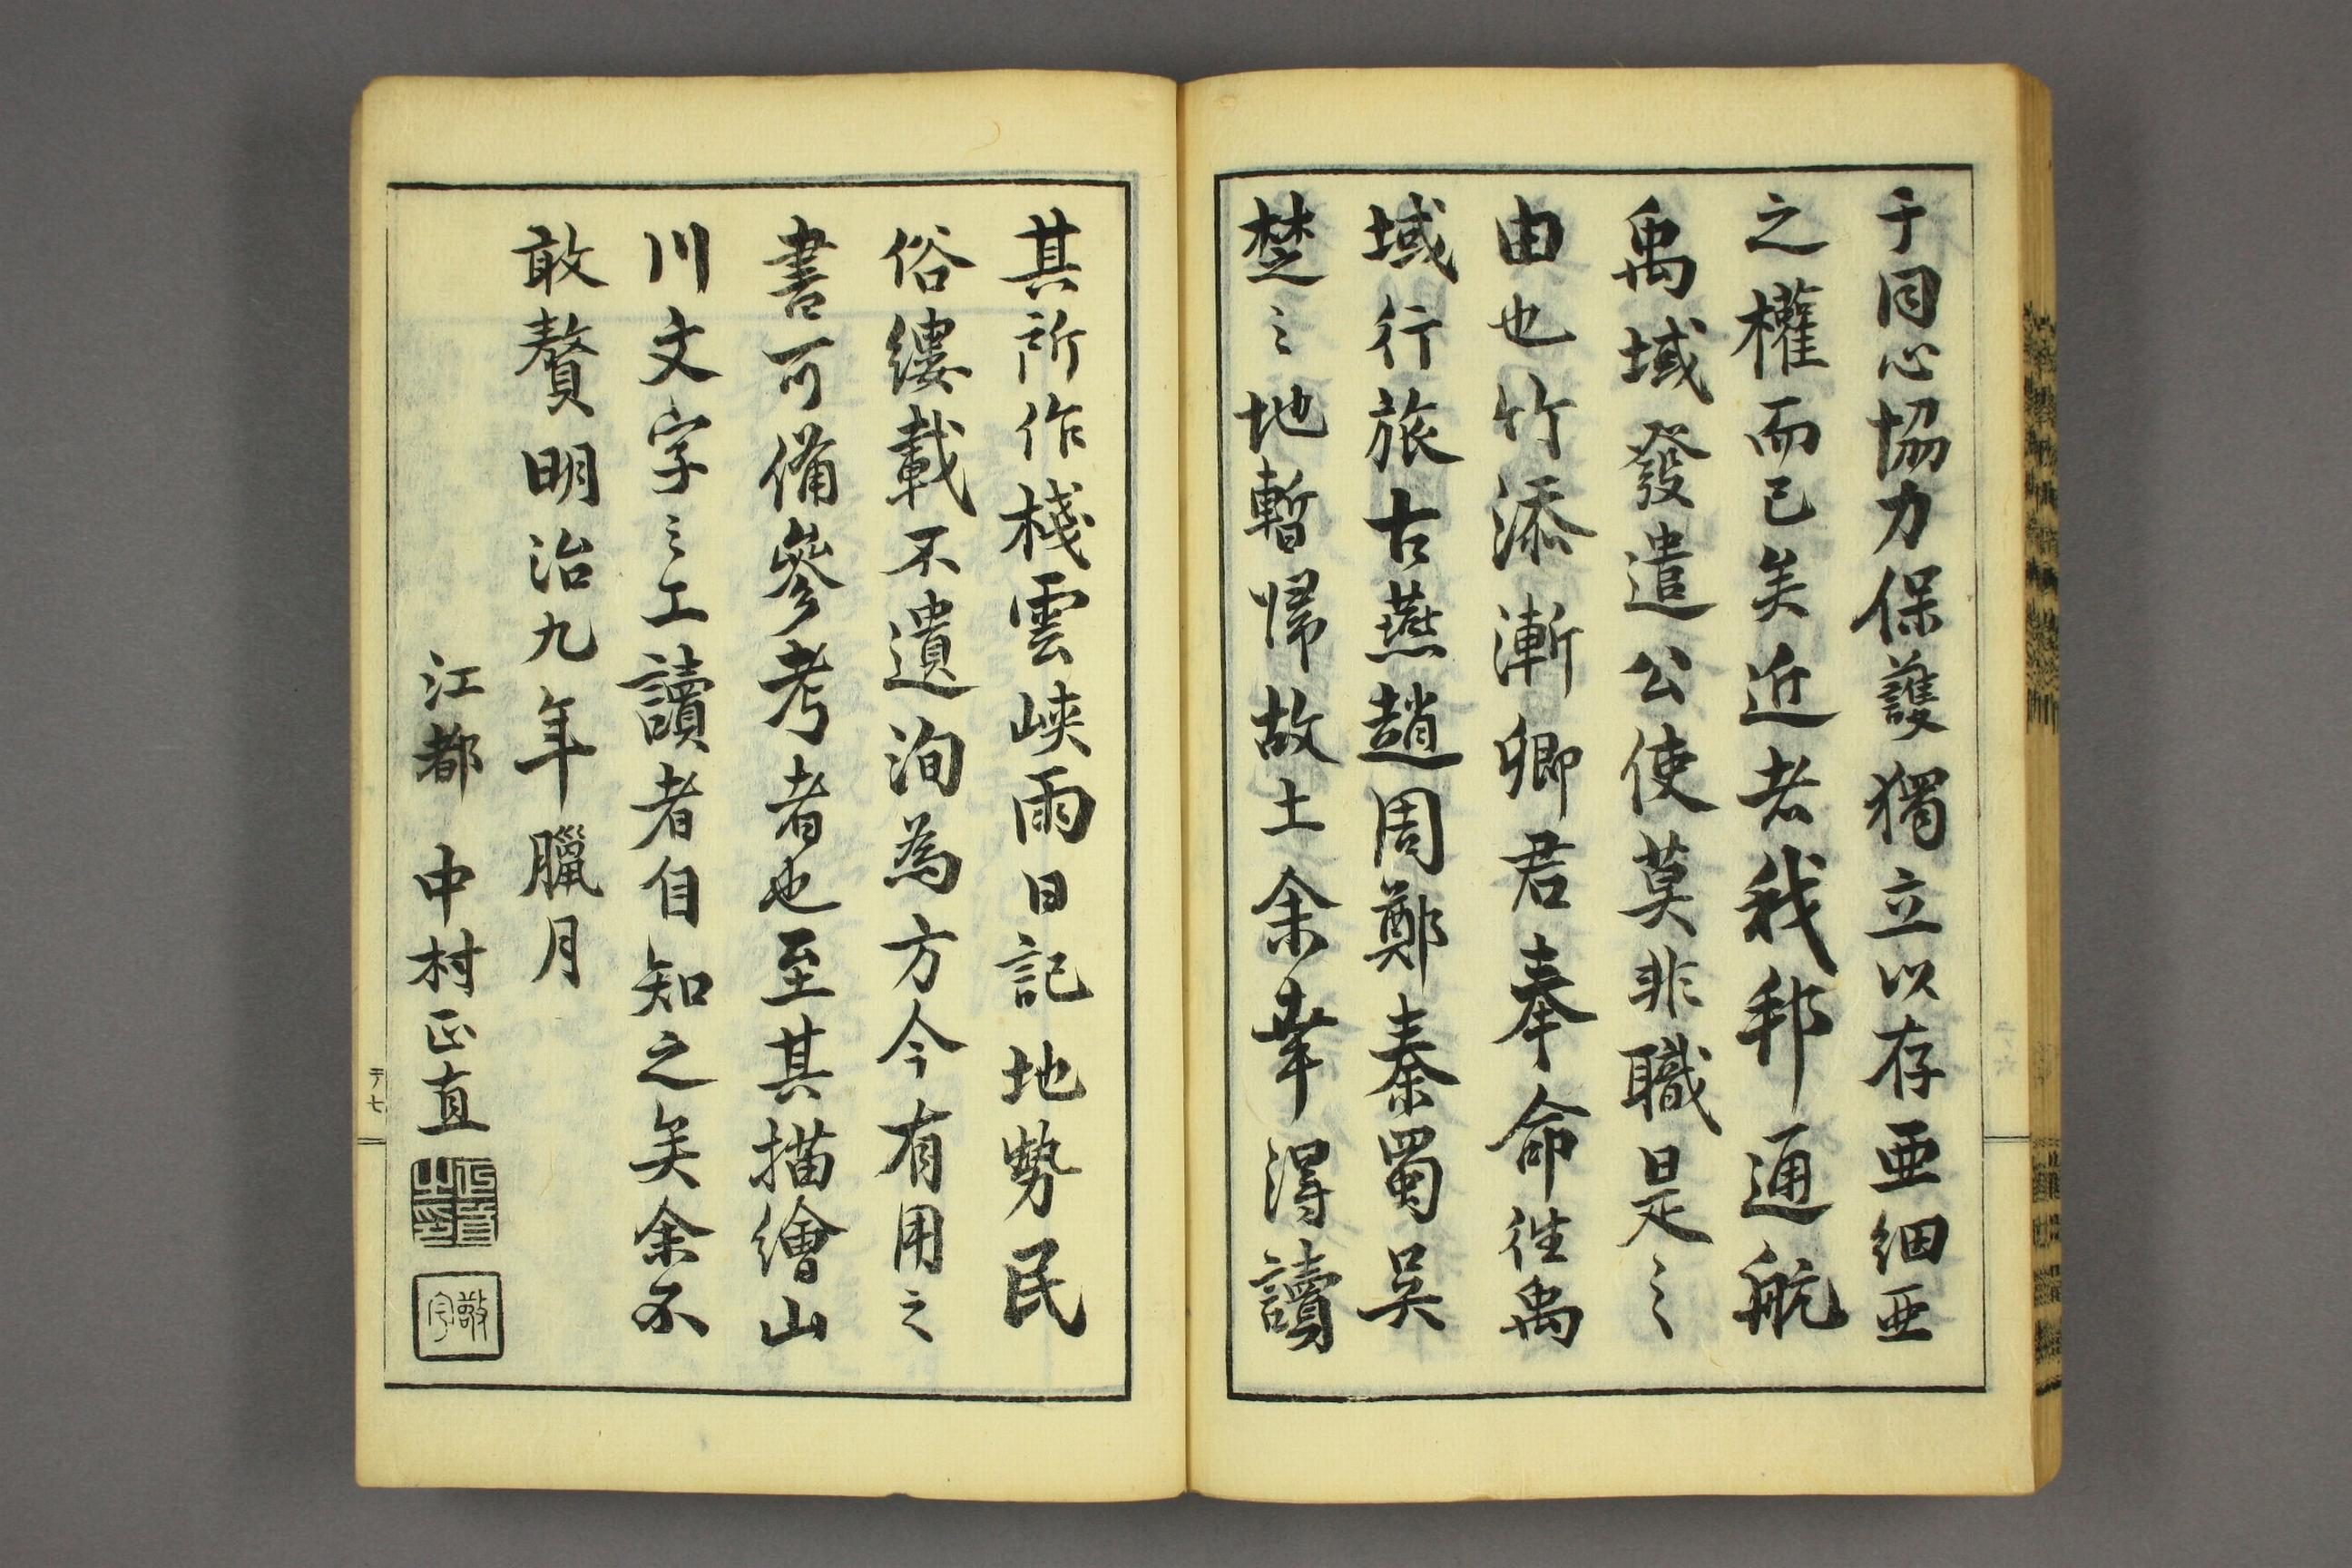 于同心協力保護獨立以存亜細亜
之權而已矣近者我邦通航
禹域發遣公使莫非職是之
由也竹添漸卿君奉命往禹
域行旅古燕趙周鄭秦蜀吴
楚之地暫歸故土余幸淂讀
其所作棧雲峡雨日記地勢民
俗縷載不遺洵為方今有用之
書可備參考者也至其描繪山
川文字之工讀者自知之矣余不
敢贅明治九年臘月
江都 中村正直
正直之印
敬宇
二ノ七